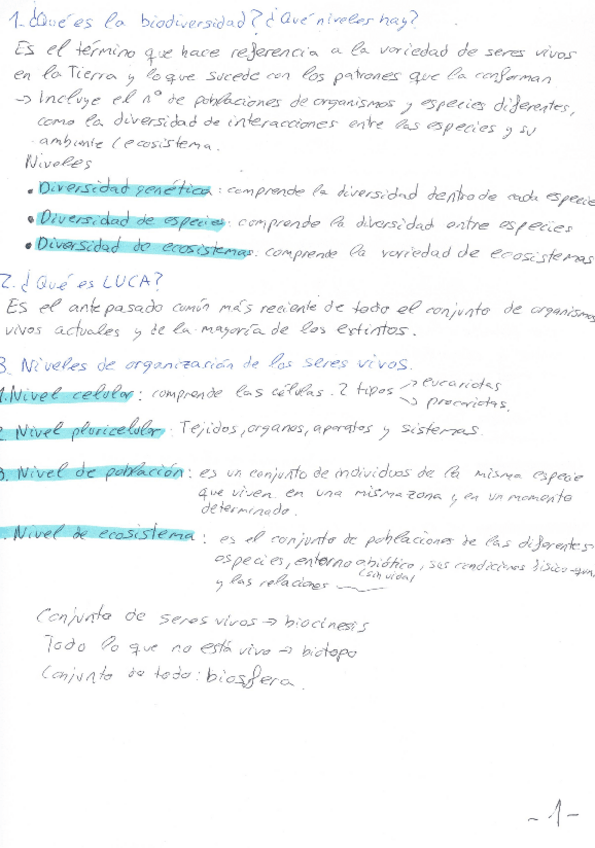 1. ¿Qué es la biodiversidad? ¿Qué niveles hay?
Es el término que hace referencia a la variedad de seres vivos
en la Tierra y lo que sucede con los patrones que la conforman
→ Incluye el nº de poblaciones de organismos y especies diferentes,
como la diversidad de interacciones entre las especies y su
ambiente (ecosistema.
Niveles
• Diversidad genética: comprende la diversidad dentro de cada especie
• Diversidad de especies: comprende la diversidad entre especies
• Diversidad de ecosistemas: comprende la variedad de ecosistemas
2. ¿Qué es LUCA?
Es el antepasado cumún más reciente de todo el conjunto de organismos
vivos actuales y de la mayoría de los extintos.
3. Niveles de organización de los seres vivos.
1. Nivel celular: comprende las células. 2 tipos → eucariotas
→ procariotas.
2. Nivel pluricelular: Tejidos, organos, aparatos y sistemas.
3. Nivel de población: es un conjunto de individuos de la misma especie
que viven en una misma zona y en un momento
determinado.
. Nivel de ecosistema: es el conjunto de poblaciones de las diferentes
especies, entorno abiótico, sus condiciones físico
(sin vida)
y las relaciones
Conjunto de seres vivos → biocinesis
Todo lo que no está vivo → biotopo
Conjunto de todo: biosfera.
-1-